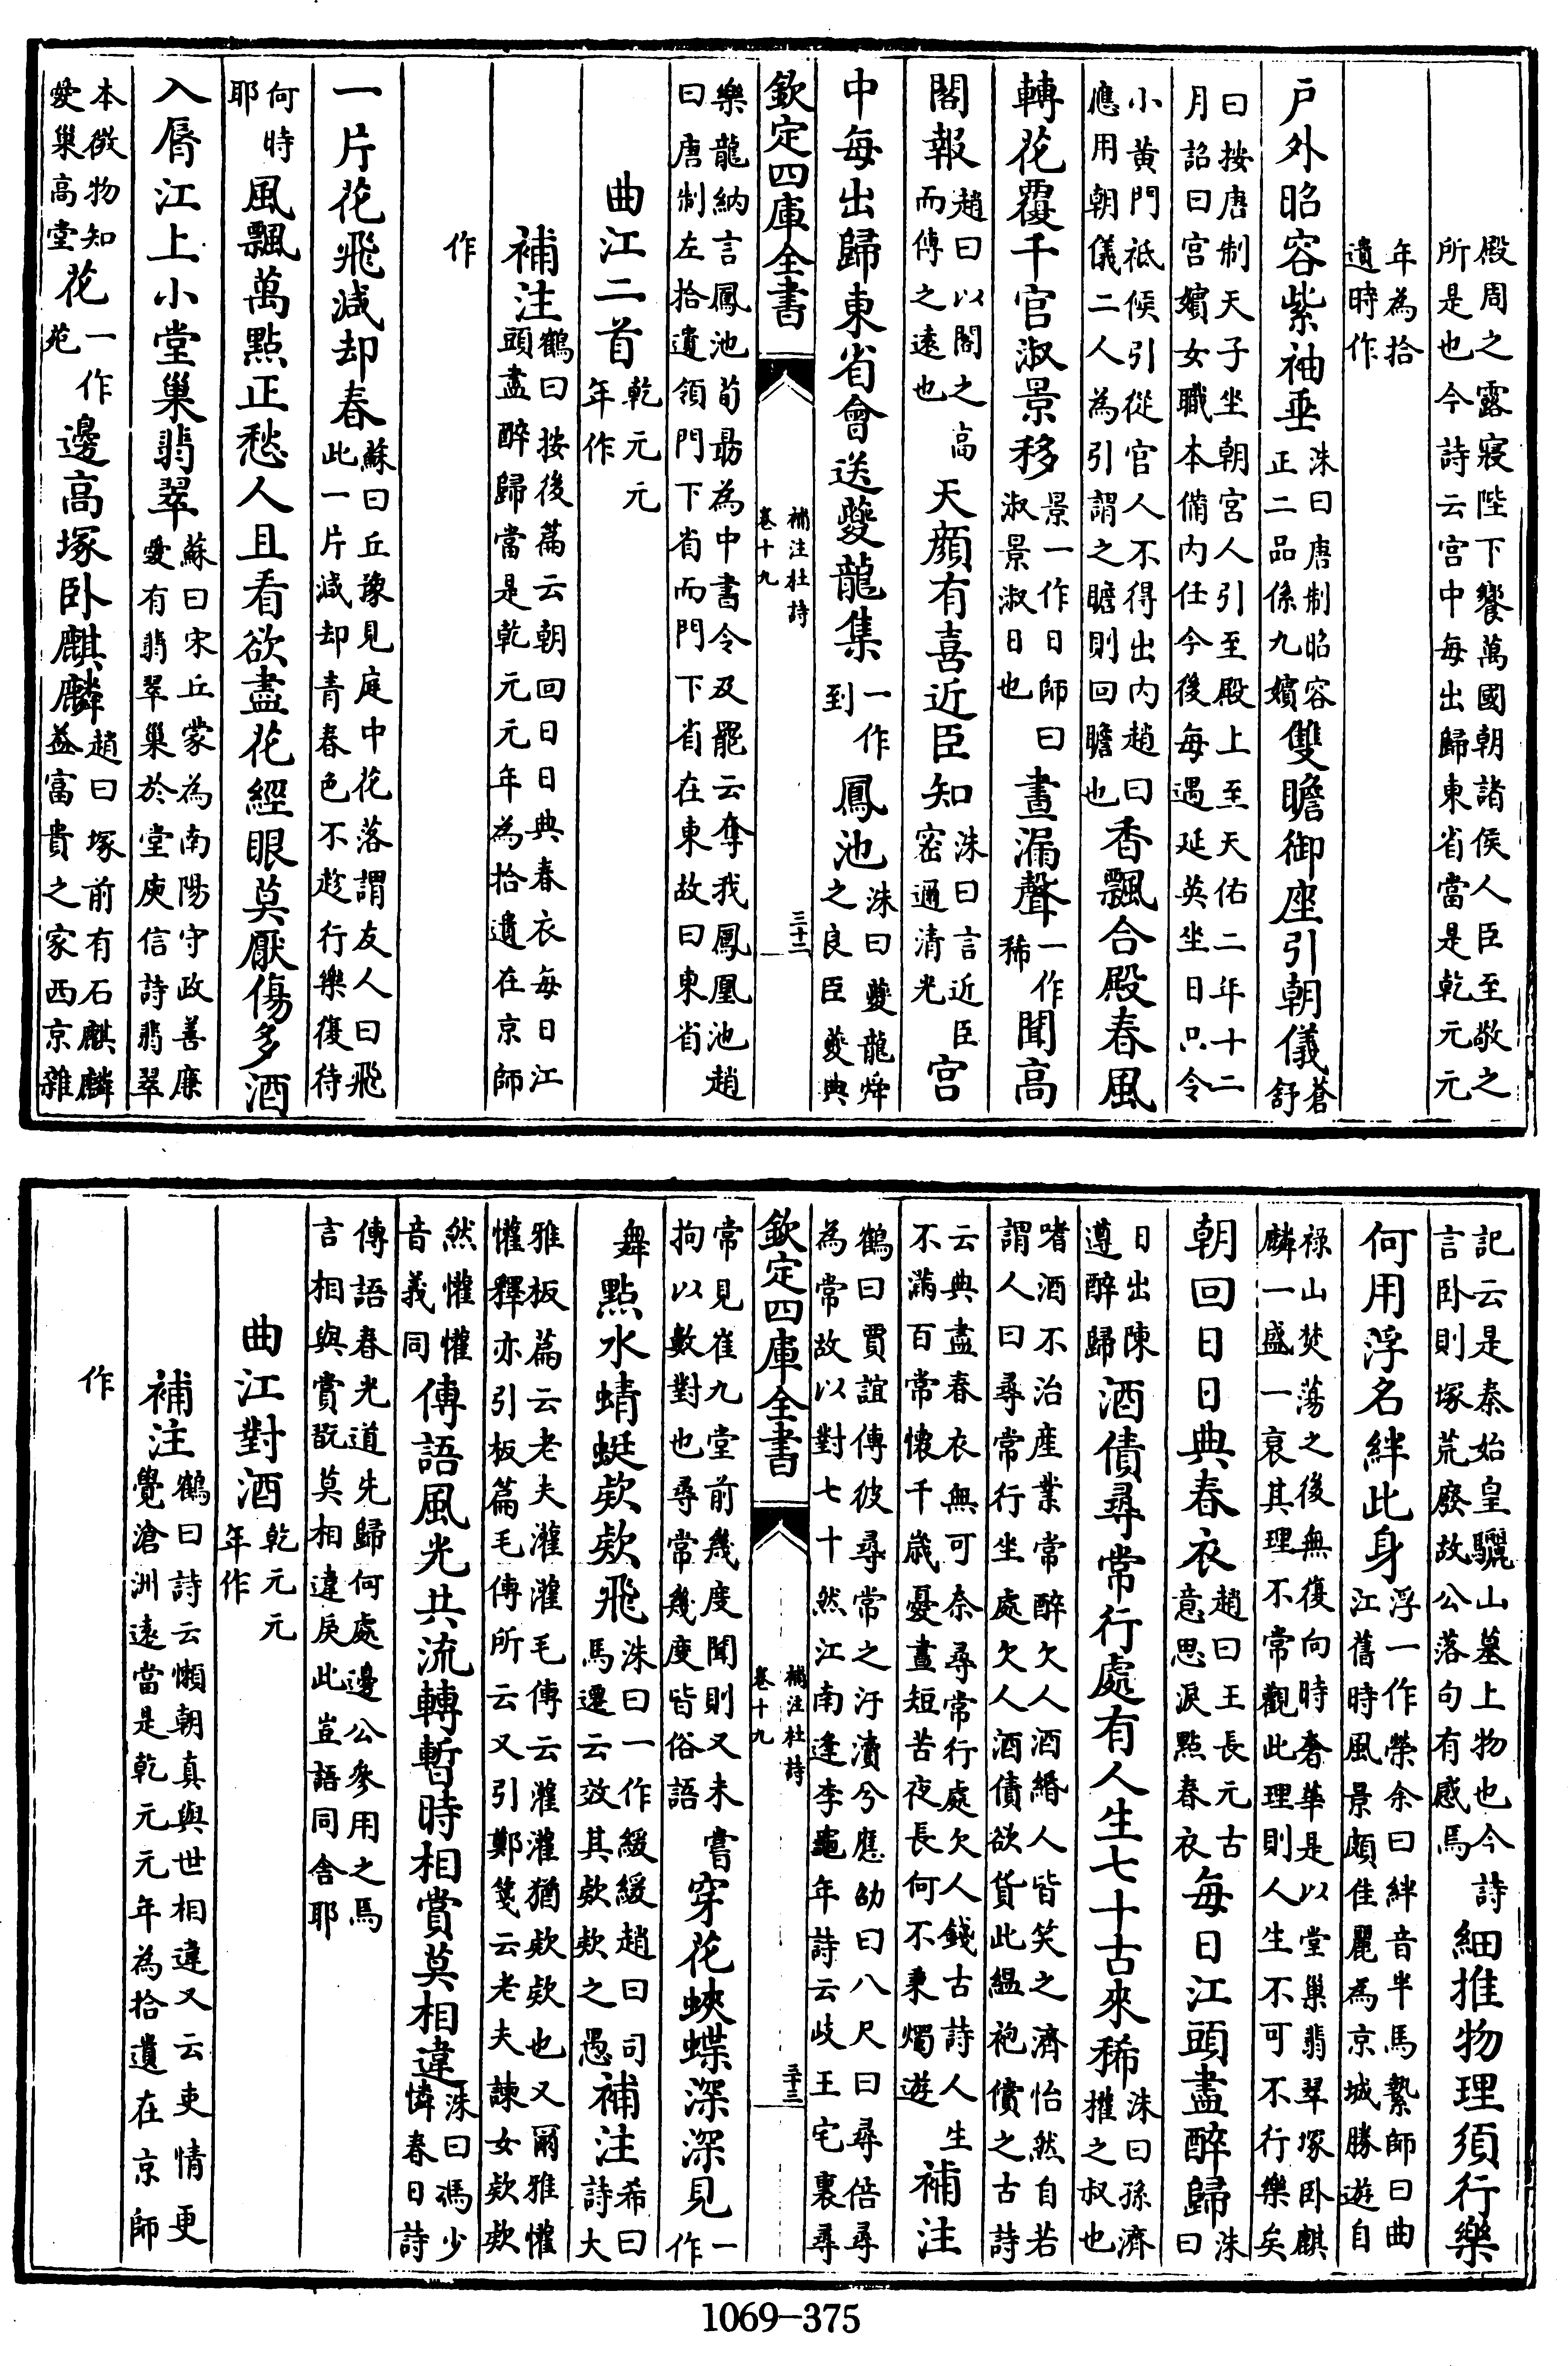 殿周之露寢陛下饗萬國朝諸侯人臣至敬之
所是也今詩云宫中每出歸東省當是乾元元
年為拾
遺時作
戸外昭容紫袖垂
洙曰唐制昭容
正二品係九嬪
雙瞻御座引朝儀
蒼
舒
曰按唐制天子坐朝宮人引至殿上至天佑二年十二
月詔曰宮嬪女職本備内任今後每遇延英坐日只令
小黄門祗候引從官人不得出内趙曰
應用朝儀二人為引謂之瞻則回瞻也
香飄合殿春風
轉花覆千官淑景移
景一作日師曰
淑景淑日也
晝漏聲
一作
稀
聞高
閣報
趙曰以閣之高
而傳之遠也
天顔有喜近臣知
洙曰言近臣
密邇清光
宮
中每出歸東省會送夔龍集
一作
到
鳳池
洙曰夔龍舜
之良臣夔典
欽定四庫全書
補注杜詩
卷十九
三十二
樂龍納言鳳池荀勗為中書令及罷云奪我鳳凰池趙
曰唐制左拾遺領門下省而門下省在東故曰東省
曲江二首
乾元元
年作
補注
鶴曰按後篇云朝回日日典春衣每日江
頭盡醉歸當是乾元元年為拾遺在京師
作
一片花飛減却春
蘇曰丘豫見庭中花落謂友人曰飛
此一片減却青春色不趁行樂復待
何時
耶
風飄萬點正愁人且看欲盡花經眼莫厭傷多酒
入脣江上小堂巢翡翠
蘇曰宋丘蒙為南陽守政善廉
愛有翡翠巢於堂庾信詩翡翠
本微物知
愛巢高堂
花
一作
苑
邊高塚卧麒麟
趙曰塚前有石麒麟
益富貴之家西京雜
記云是秦始皇驪山墓上物也今詩
言卧則塚荒廢故公落句有感焉
細推物理須行樂
何用浮名絆此身
浮一作榮余曰絆音半馬縶師曰曲
江舊時風景頗佳麗為京城勝遊自
禄山焚蕩之後無復向時奢華是以堂巢翡翠塚卧麒
麟一盛一衰其理不常觀此理則人生不可不行樂矣
朝回日日典春衣
趙曰王長元古
意思淚點春衣
每日江頭盡醉歸
洙
曰
日出陳
遵醉歸
酒債尋常行處有人生七十古來稀
洙曰孫濟
權之叔也
嗜酒不治産業常醉欠人酒緡人皆笑之濟怡然自若
謂人曰尋常行坐處欠人酒債欲貨此緼袍償之古詩
云典盡春衣無可奈尋常行處欠人錢古詩人生
不滿百常懷千歳憂晝短苦夜長何不秉燭遊
補注
鶴曰賈誼傳彼尋常之汙瀆兮應劭曰八尺曰尋倍尋
為常故以對七十然江南逢李龜年詩云岐王宅裏尋
欽定四庫全書
補注杜詩
卷十九
三十三
常見崔九堂前幾度聞則又未嘗
拘以數對也尋常幾度皆俗語
穿花蛺蝶深深見
一
作
舞
點水蜻蜓欵欵飛
洙曰一作緩緩趙曰司
馬遷云效其欵欵之愚
補注
希曰
詩大
雅板篇云老夫灌灌毛傳云灌灌猶欵欵也又爾雅懽
懽釋亦引板篇毛傳所云又引鄭箋云老夫諫女欵欵
然懽懽
音義同
傳語風光共流轉暫時相賞莫相違
洙曰馮少
憐春日詩
傳語春光道先歸何處邊公參用之焉
言相與賞翫莫相違戾此豈語同含耶
曲江對酒
乾元元
年作
補注
鶴曰詩云懶朝真與世相違又云吏情更
覺滄洲遠當是乾元元年為拾遺在京師
作
1069-375